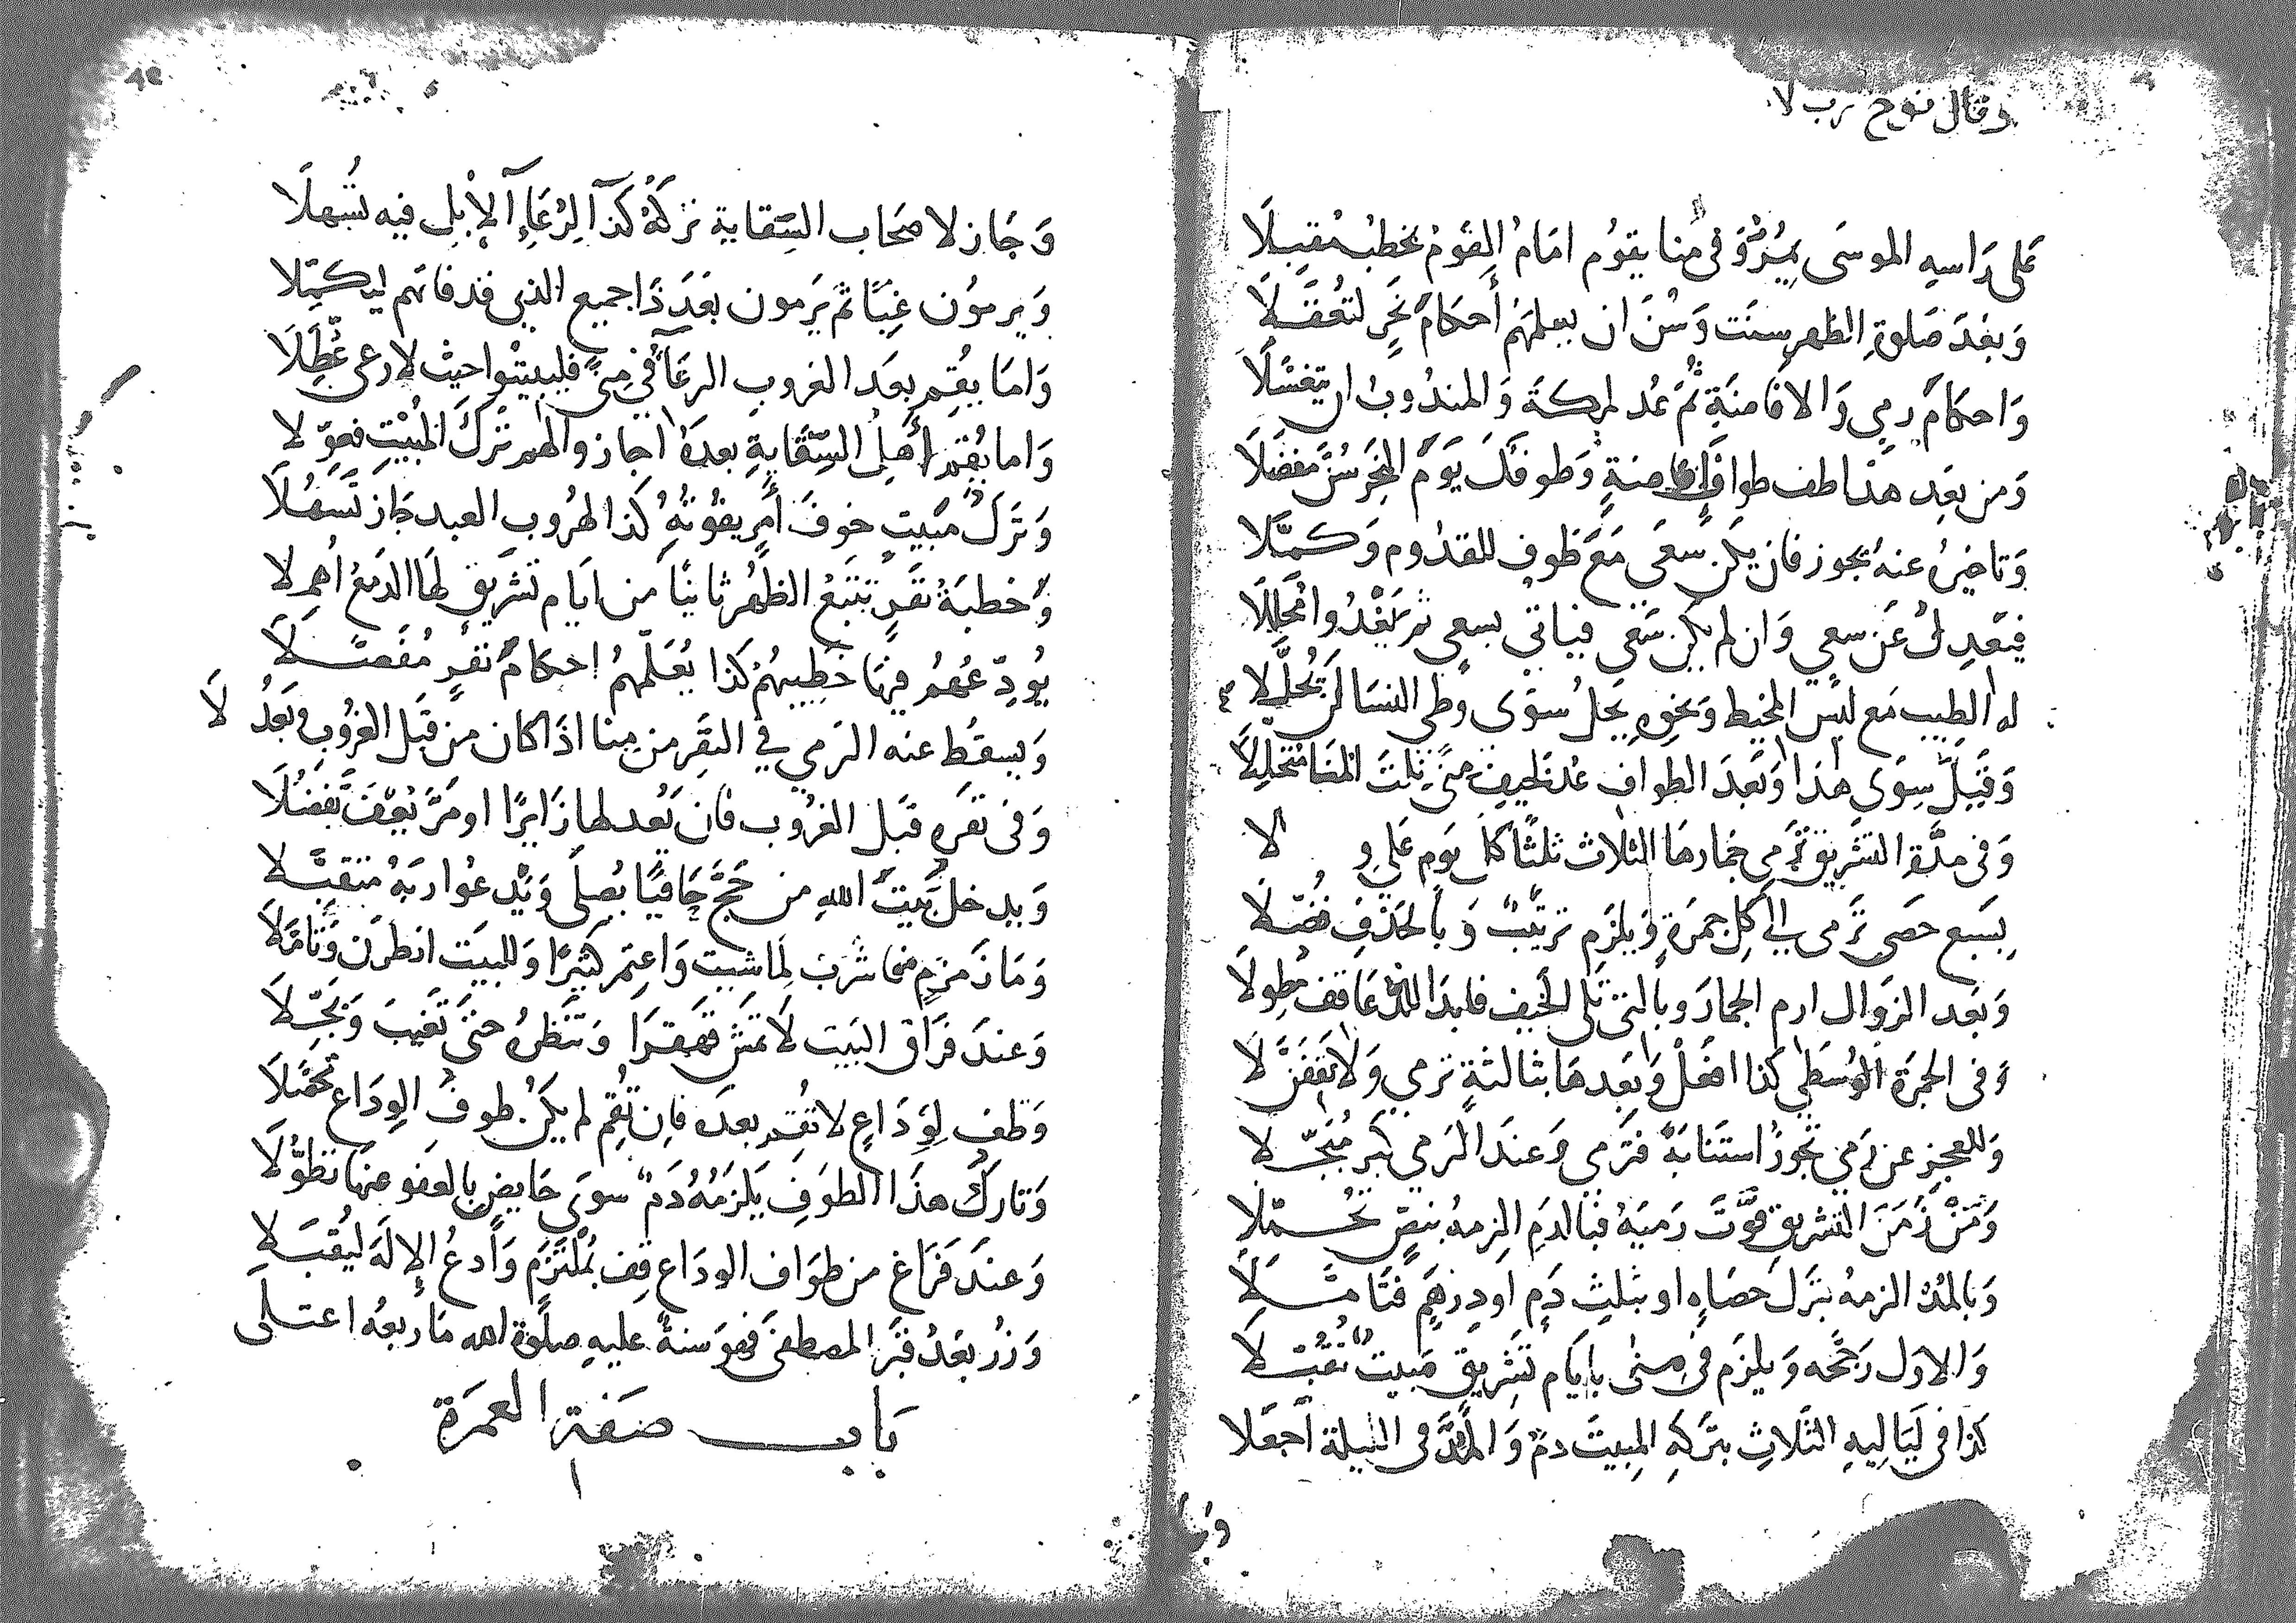 وقال نوح رب لا
عَلى رَاسِهِ الموسَى يَمُرُّ وَفى مِنا يقوُم امَامُ القَوْم يخطبُ مُقبِلَا
وَبَعْدَ صَلوةِ الظهرِ سنَت وَسُنَّ ان يعلمهُمْ أحكَامَ نَحرٍ لتُعْقَلَا
وَاحكَامَ رمي وَالافَاضَةِ ثُمَّ عُد لمكةَ وَالمندُوبُ ان يَتغسَّلَا
وَمن بَعِد هذا طف طوافَ إفاضةٍ وَطوفكَ يَومَ النَحرِ سُنَّ مفضَّلَا
وَتاخيرُ عنهُ يجوز فان يكن سَعَى مَعَ طوفٍ للقدُوم وَكمَّلَا
فيَعْدِلُ عَن سعي وَان لم يكن سَعَى فياتي بسعيٍ ثم يَغْدُوا مُحَلِّلَا
له الطيب مَع لبس المخيط وَنحوِه يحلُ سوَى وطي النسَا لَن يُحلَّلا
وَقيلَ سِوَى هَذا وَبَعدَ الطواف عُد لخيفِ مِنىً
وَفى مدَّة التشريق تَرمِي جمارهَا الثلاث ثلثًا كلَ يَومٍ عَلى وِلَا
بِسَبع حصَى تَرمى إلى كلِ جمرَةٍ وَيلزَم ترتيبٌ وَبالحَذفِ فُضّلَا
وَبَعد الزوَال ارم الجمارَ وبالتى تلى الخيف فابدَا للدُّعَا قف مُطولَا
وَفى الجمرَة الوُسَطى كذا افعَلْ وَبَعدهَا بثالثةٍ ترمي وَلا تَقفَنَّ لَا
وَللعجزِ عن رَمي تجوزُ استنابَةٌ فتَرمي وَعندَ الرَمي كبّر مُبَجّلا
وَمَنْ زَمَنَ التشريق فوَّتَ رَميَهُ فبالدَمِ الزمهُ بنصٍّ تحُمّلا
وَبالمُدّ الزمهُ بتَركِ حصَاهٍ او بثلثِ دَمٍ او دِرهَمٍ فتَامَّلَا
وَالاول رَجّحه وَيلزَم فى مِنى بايَام تَشرِيقٍ مَبيتٌ تقبّلَا
كذا فى لَيَالِيهِ الثَلاثِ بتَركهِ المبيتَ دمٌ وَالمُدَّ فى الليلة اجعَلا
وَجَا
وَجَاز لاصحَاب السِّقاية تركهُ كذَا لرُعَاءِ الإبلِ فيه تُسُهلَا
وَيرمُون غِبًا ثمَّ يَرمون بَعَدَ ذَا جميع الذى قد فاتهم ليكمِّلا
وَامَا يقُم بعَد الغروبِ الرعَا فى مِنىً فليبيتُوا حيث لا رعى عُطِّلَا
وَاما يُقم أهلُ السِّقَايةِ بعدَهُ اجَاز والهم تَرْك المبيْتِ فعوّلا
وَتَركُ مَبيتٍ خوفَ أمرٍ يفُوتُهُ كذا لهُروب العبد جَازَ تَسَهُّلَا
وَخطبَةُ نفَرٍ تتبَعُ الظهُر ثانيًا من ايَام تشريقٍ لهَا الدَمعُ اُهملا
يُودِّعُهُم فيهَا خَطِيبُهُمْ كَذا يُعَلّمهُمُ احكامَ نفرٍ مُفَصَّلَا
وَيسقط عنه الرَمي في النَفرِ من مِنا اذَا كان من قبَل الغرُوبِ وَبَعَدُ لَا
وَفى نفَرِهِ قبَل الغرُوب فان يَعُد لها زَايرًا او مَرَّ يعَفَ تَفضُّلَا
وَيدخل بَيتَ اللهِ من حَجَّ حَافيًا يُصلى وَيَدعُوا ربَهُ متقبَّلا
وَمَا زَمزمٍ منها شربْ لِمَا شيت وَاعتمِر كثيرًا وَللبيَت انظرَن وَتامَّلَا
وَعندَ فرَاق البَيت لا تمَش قهَقرَا وَتنظرُهُ حتىَ تغيبَ وَبجّلَا
وَطف لِوَدَاعٍ لا تُقم بعدَه فان تُقِم لم يكنُ طوفُ الوِدَاع تحصَّلَا
وَتارك هذَا الطوفِ يَلزمُهُ دَمٌ سوَى حَايضٍ بالعَفو عنهَا تطوَّلَا
وَعندَ فرَاغٍ من طوَاف الودَاع قف بمُلتَزَمٍ وَادعُ الإلَهَ ليُقبَلا
وَزُر بعَدُ قبَر المصطفىَ فهَوَ سنةٌ عليهِ صلَوة الله مَا ربعُهُ اعتلَى
بَاب صَفة العمرَة